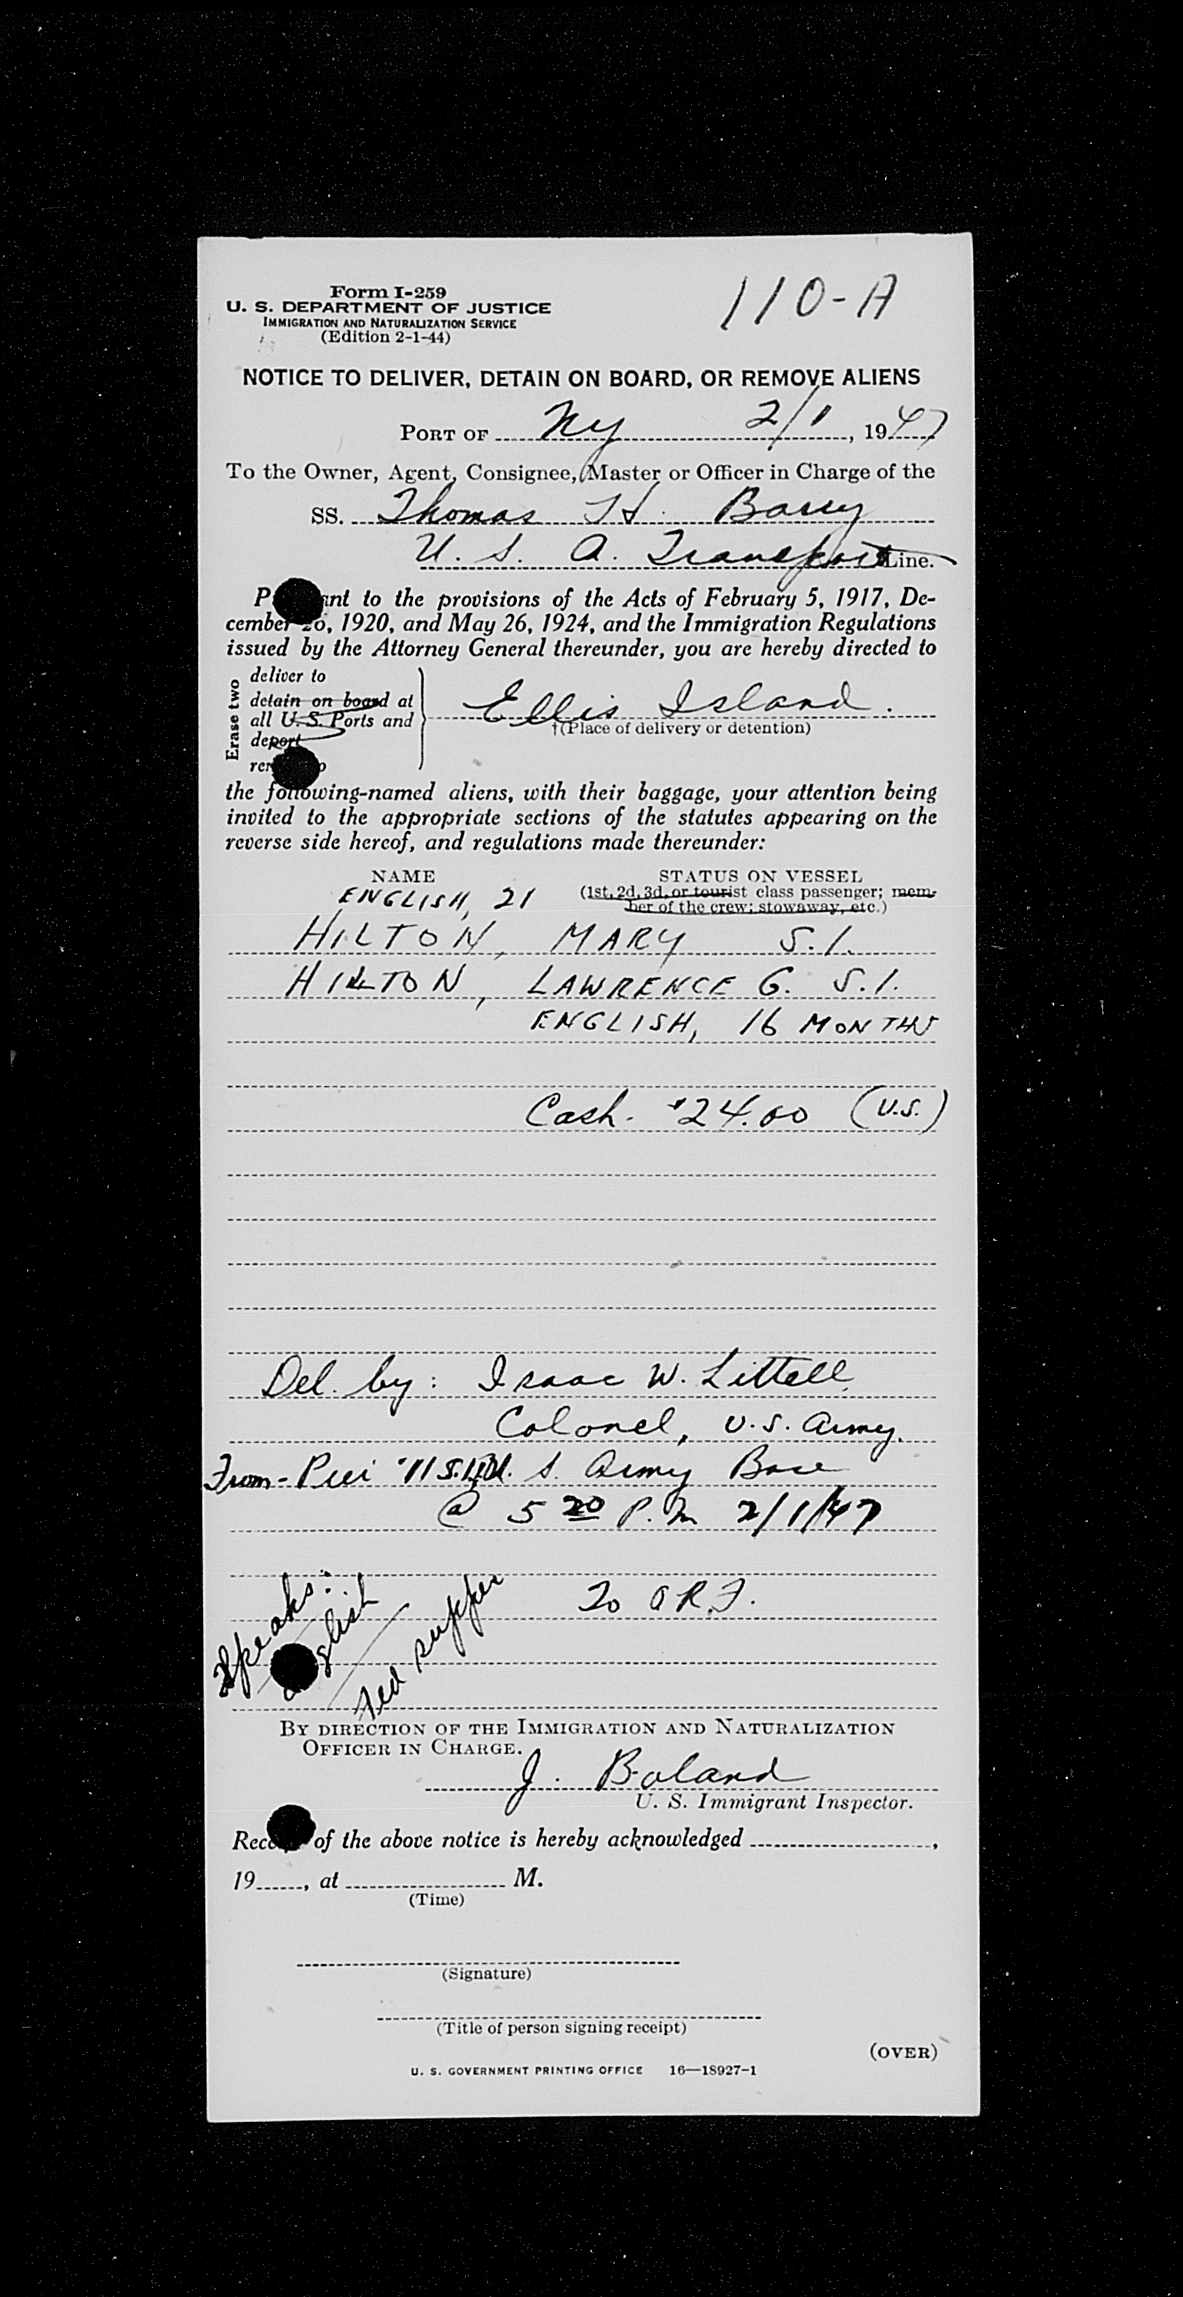 Form I-259
110-A
U. S. DEPARTMENT OF JUSTICE
IMMIGRATION AND NATURALIZATION SERVICE
(Edition 2-1-44)
NOTICE TO DELIVER, DETAIN ON BOARD, OR REMOVE ALIENS
PORT OF NY 2/1, 1947
To the Owner, Agent, Consignee, Master or Officer in Charge of the
SS. Thomas H. Barry
U. S. A. Transport Line.
P ant to the provisions of the Acts of February 5, 1917, De-
cember 26, 1920, and May 26, 1924, and the Immigration Regulations
issued by the Attorney General thereunder, you are hereby directed to
Erase two
deliver to
detain on board at
all U. S. Ports and
deport
Ellis Island.
†(Place of delivery or detention)
the following-named aliens, with their baggage, your attention being
invited to the appropriate sections of the statutes appearing on the
reverse side hereof, and regulations made thereunder:
NAME STATUS ON VESSEL
ENGLISH, 21 (1st, 2d, 3d, or tourist class passenger; mem-
ber of the crew; stowaway, etc.)
HILTON, MARY S.I.
HILTON, LAWRENCE G. S.I.
ENGLISH, 16 MONTHS
Cash - $24.00 (U.S.)
Del. by: Isaac W. Littell
Colonel, U.S. Army.
From - Pier #11 S. Army Base
@ 5 20 P.M 2/1/47
Speaks:
English
Fed supper
To
BY DIRECTION OF THE IMMIGRATION AND NATURALIZATION
OFFICER IN CHARGE.
J. Boland
U. S. Immigrant Inspector.
Receipt of the above notice is hereby acknowledged ,
19 , at M.
(Time)
(Signature)
(Title of person signing receipt)
(OVER)
U. S. GOVERNMENT PRINTING OFFICE 16—18927-1